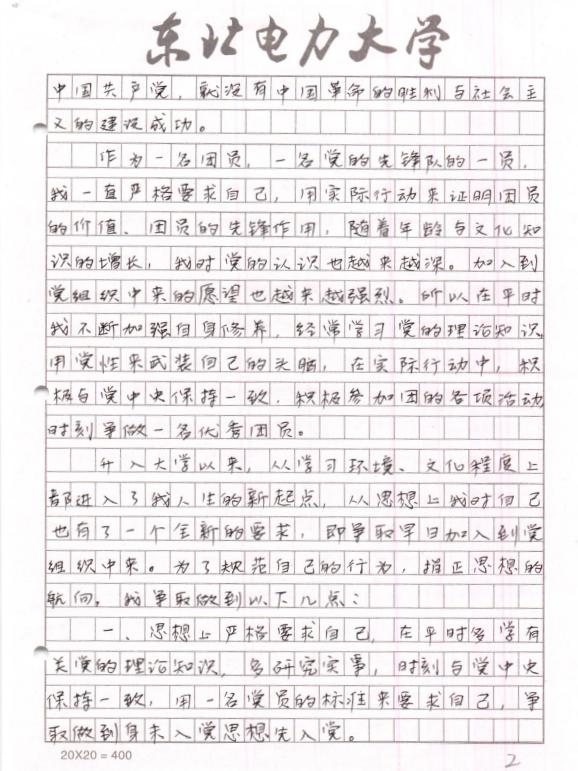 东北电力大学
中国共产党，就没有中国革命的胜利与社会主
义的建设成功。
作为一名团员，一名党的先锋队的一员，
我一直严格要求自己，用实际行动来证明团员
的价值、团员的先锋作用，随着年龄与文化知
识的增长，我对党的认识也越来越深。加入到
党组织中来的愿望也越来越强烈。所以在平时
我不断加强自身修养，经常学习党的理论知识，
用党性来武装自己的头脑，在实际行动中，积
极与党中央保持一致，积极参加团的各项活动
时刻争做一名优秀团员。
升入大学以来，从学习环境、文化程度上
都进入了我人生的新起点，从思想上我对自己
也有了一个全新的要求，即争取早日加入到党
组织中来。为了规范自己的行为，指正思想的
航向。我争取做到以下几点：
一、思想上严格要求自己，在平时多学有
关党的理论知识，多研究实事，时刻与党中央
保持一致，用一名党员的标准来要求自己，争
取做到身未入党思想先入党。
20X20=400
2